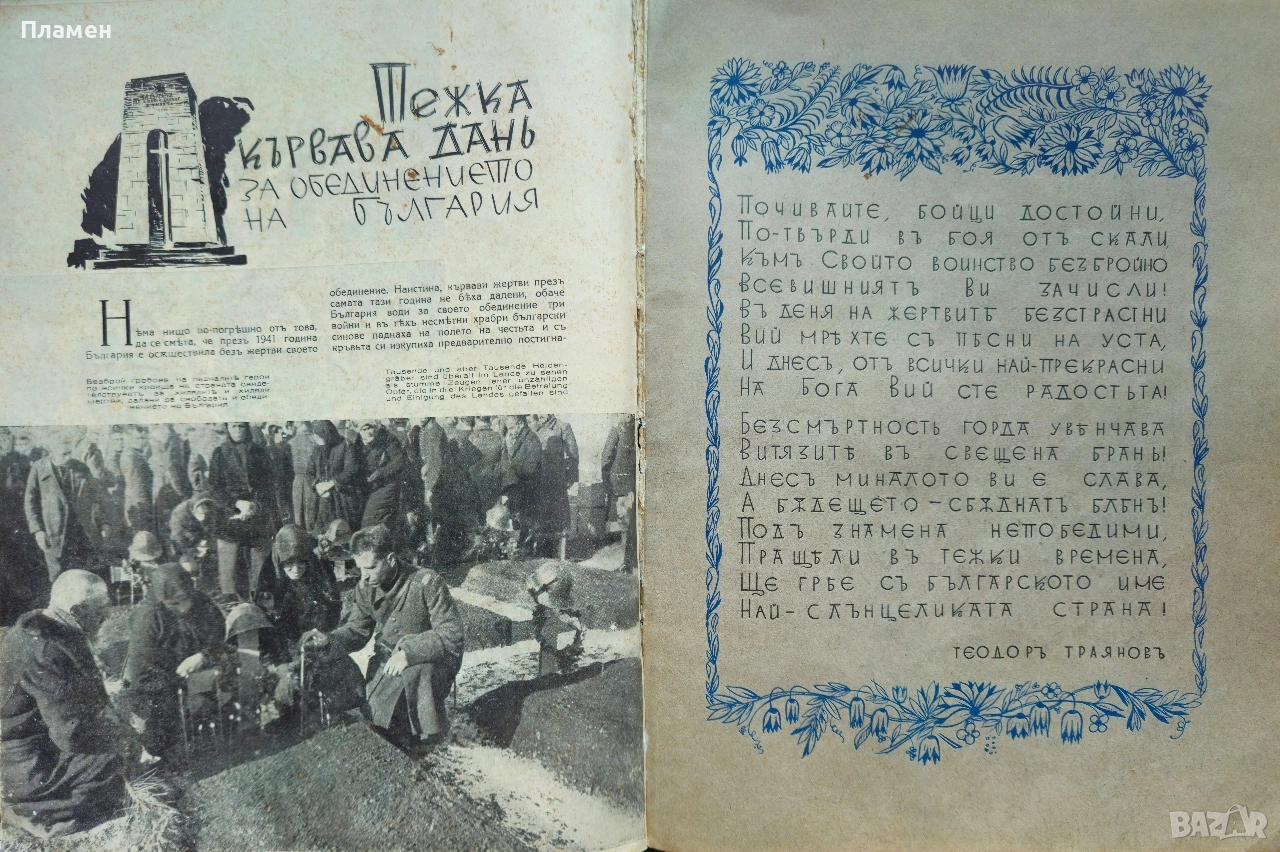 Пламен
ТЕЖКА
КЪРВАВА ДАНЬ
ЗА ОБЕДИНЕНИЕТО
НА БЪЛГАРИЯ
Нѣма нищо по-погрѣшно отъ това,
да се смѣта, че презъ 1941 година
България е осѫществила безъ жертви своето
обединение. Наистина, кървави жертви презъ
самата тази година не бѣха дадени, обаче
България води за своето обединение три
войни и въ тѣхъ несмѣтни храбри български
синове паднаха на полето на честьта и съ
кръвьта си изкупиха предварително постигна-
Безброй гробове на падналитѣ герои
по всички краища на страната свиде-
телствуватъ за хиляди и хиляди
жертви, дадени за свободата и обеди-
нението на България
Tausende und aber Tausende Helden-
gräber sind überall im Lande zu sehen
als stumme Zeugen jener unzähligen
Opfer, die in die Kriegen für die Befreiung
und Einigung des Landes gefallen sind
ПОЧИВАЙТЕ, БОЙЦИ ДОСТОЙНИ,
ПО-ТВЪРДИ ВЪ БОЯ ОТЪ СКАЛИ,
КЪМЪ СВОЙТО ВОИНСТВО БЕЗБРОЙНО
ВСЕВИШНИЯТЪ ВИ ЗАЧИСЛИ!
ВЪ ДЕНЯ НА ЖЕРТВИТѢ БЕЗСТРАСТНИ
ВИЙ МРѢХТЕ СЪ ПѢСНИ НА УСТА,
И ДНЕСЪ, ОТЪ ВСИЧКИ НАЙ-ПРЕКРАСНИ
НА БОГА ВИЙ СТЕ РАДОСТЬТА!
БЕЗСМЪРТНОСТЬ ГОРДА УВѢНЧАВА
ВИТЯЗИТѢ ВЪ СВЕЩЕНА БРАНЬ!
ДНЕСЪ МИНАЛОТО ВИ Е СЛАВА,
А БѪДЕЩЕТО – СБѪДНАТЪ БЛѢНЪ!
ПОДЪ ЗНАМЕНА НЕПОБЕДИМИ,
ПРАЩѢЛИ ВЪ ТЕЖКИ ВРЕМЕНА,
ЩЕ ГРѢЕ СЪ БЪЛГАРСКОТО ИМЕ
НАЙ-СЛЪНЦЕЛИКАТА СТРАНА!
ТЕОДОРЪ ТРАЯНОВЪ
BAZAR